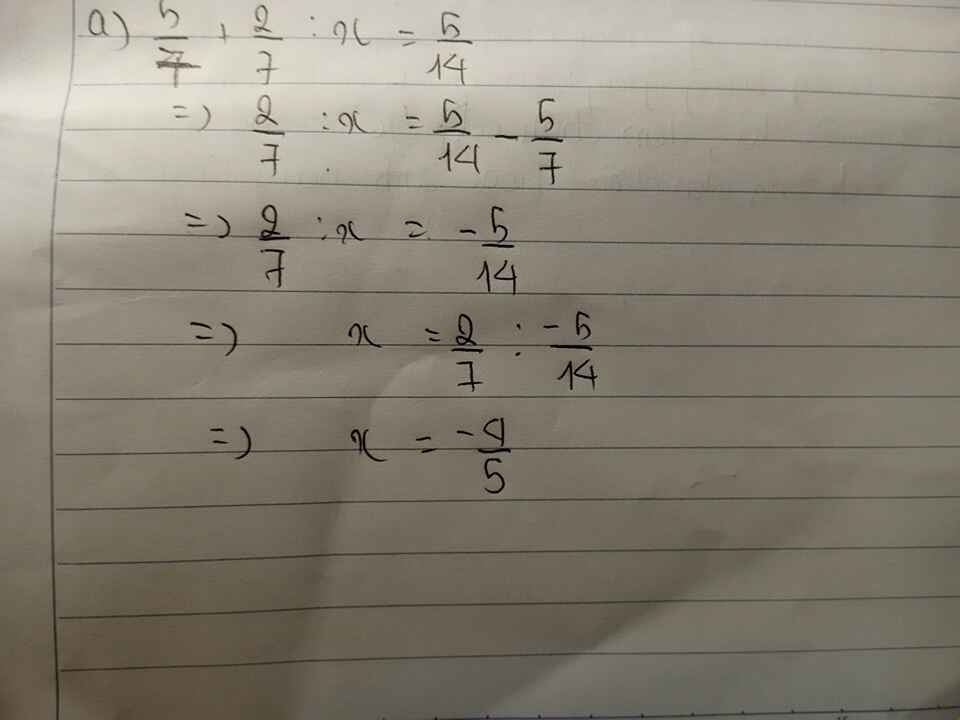 a) 5/7 + 2/7 : x = 5/14
=> 2/7 : x = 5/14 - 5/7
=> 2/7 : x = -5/14
=> x = 2/7 : -5/14
=> x = -4/5